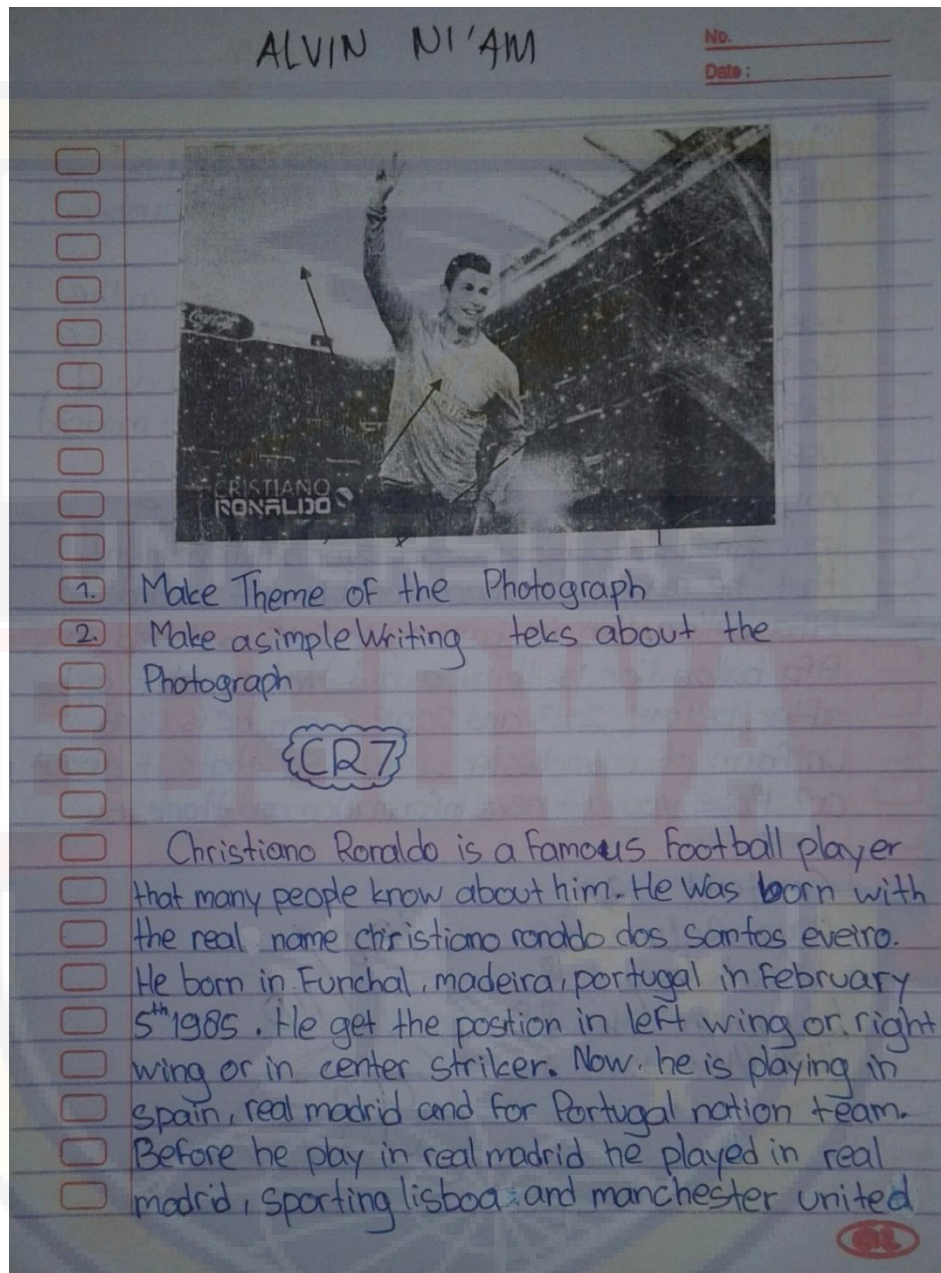 ALVIN NI'AM
No.
Date :
Coca-Cola
CRISTIANO
RONALDO
1. Make Theme of the Photograph
2. Make a simple Writing teks about the
Photograph
CR7
Christiano Ronaldo is a famous football player
that many people know about him. He was born with
the real name christiano ronaldo dos santos eveiro.
He born in Funchal, madeira, portugal in February
5th 1985. He get the postion in left wing or right
wing or in center striker. Now, he is playing in
spain, real madrid and for Portugal nation team.
Before he play in real madrid he played in real
madrid, sporting lisboa and manchester united